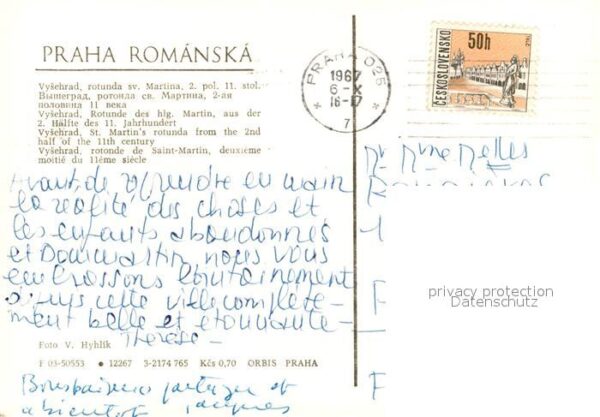 PRAHA ROMÁNSKÁ
Vyšehrad, rotunda sv. Martina, 2. pol. 11. stol.
Вышеград, ротонда св. Мартина, 2-ая
половина 11 века
Vyšehrad, Rotunde des hlg. Martin, aus der
2. Hälfte des 11. Jahrhundert
Vyšehrad, St. Martin's rotunda from the 2nd
half of the 11th century
Vyšehrad, rotonde de Saint-Martin, deuxième
moitié du 11ème siècle
PRAHA 025
1967
6-X
16-17
7
50h
ČESKOSLOVENSKO
Mr Mme
Avant de reprendre en main
la réalité des choses et
les enfants abandonnés
et nous vous
embrassons lointainement
depuis cette ville complète-
ment belle et étonnante-
Thérèse-
privacy protection
Datenschutz
Foto V. Hyhlík
F 03-50553 • 12267 3-2174 765 Kčs 0,70 ORBIS PRAHA
Bons baisers partager et
a bientot Jacques